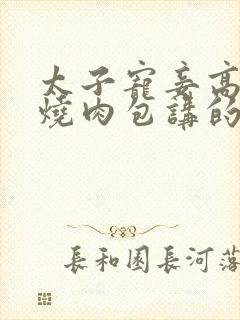 太子寵妾高
燒肉包講的
長和園長河落